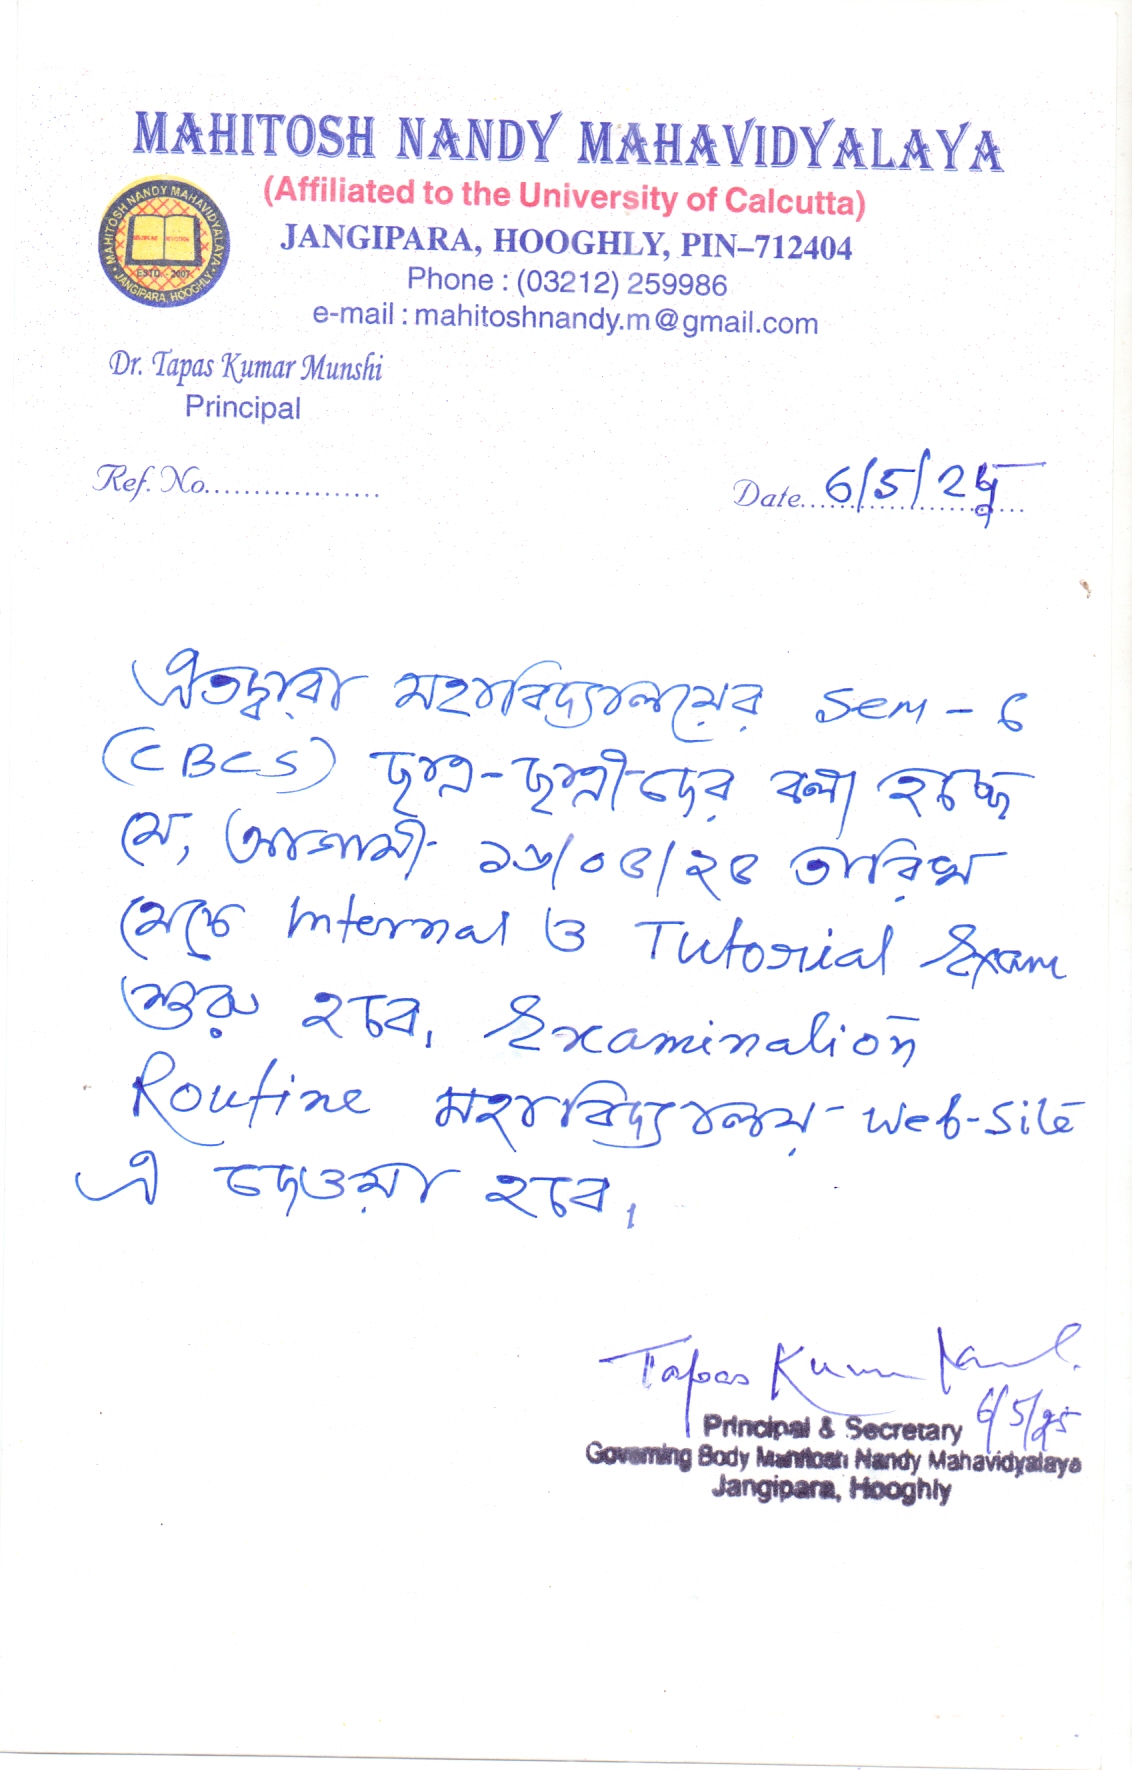 MAHITOSH NANDY MAHAVIDYALAYA
(Affiliated to the University of Calcutta)
JANGIPARA, HOOGHLY, PIN–712404
Phone : (03212) 259986
e-mail : mahitoshnandy.m@gmail.com
MAHITOSH NANDY MAHAVIDYALAYA
ESTD. 2007
JANGIPARA, HOOGHLY
Dr. Tapas Kumar Munshi
Principal
Ref. No..................
Date... 6/5/25
এতদ্বারা মহাবিদ্যালয়ের Sem - 6
(CBCS) ছাত্র-ছাত্রীদের বলা হচ্ছে
যে, আগামী ১৬/০৫/২৫ তারিখ
থেকে Internal ও Tutorial Exam
শুরু হবে। Examination
Routine মহাবিদ্যালয় web-site
এ দেওয়া হবে।
Tapas Kumar
6/5/25
Principal & Secretary
Governing Body Mahitosh Nandy Mahavidyalaya
Jangipara, Hooghly